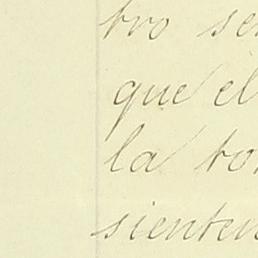 tro se
que el
la to
sienten